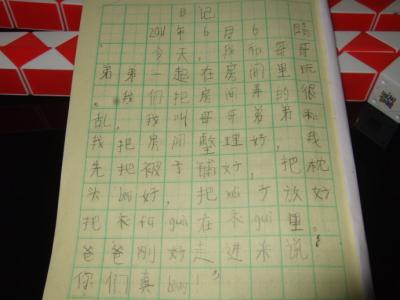 日记
2011年6月6 晴
今天,我和哥哥
弟弟一起在房间里玩
。我们把房间弄的很
乱,我叫哥哥弟弟和
我把房间整理好,我
先把被子铺好,把枕
头bai好,把xié子放好
把衣fú guà在衣guì里。
爸爸刚好走进来说:
你们真bàng!"